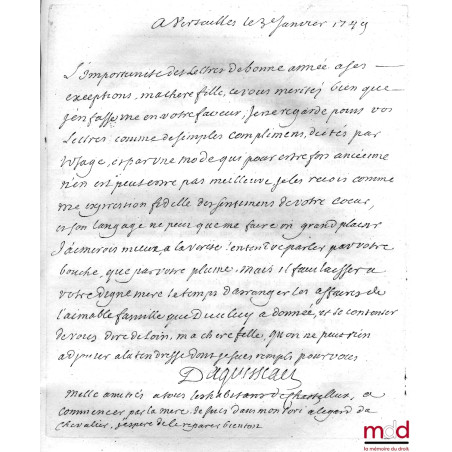 a Versailles le 3e Janvier 1749
L'importunité des Lettres de bonne année a ses
exceptions, ma chere fille, et vous merités bien que
j'en fasse une en votre faveur, Je ne regarde point vos
Lettres comme de simples complimens, dictés par
l'usage, et par une mode qui pour estre fort ancienne
n'en est peut estre pas meilleure, Je les recois comme
une expression fidelle des sentimens de votre coeur,
et son langage ne peut que me faire un grand plaisir
J'aimerois mieux, a la verité l'entendre parler par votre
bouche, que par votre plume. mais il faut laisser a
votre digne mere le temps d'arranger les affaires de
l'aimable famille que Dieu luy a donnée, et se contenter
de vous dire de loin, ma chere fille, qu'on ne peut rien
adjouter a la tendresse dont je suis rempli pour vous
Daguesseau
Mille amitiés a tous les habitans de Chastellux, a
commencer par la mere. Je suis dans mon tort a l'egard du
chevalier, j'espere de le reparer bientost
mdd
la mémoire du droit